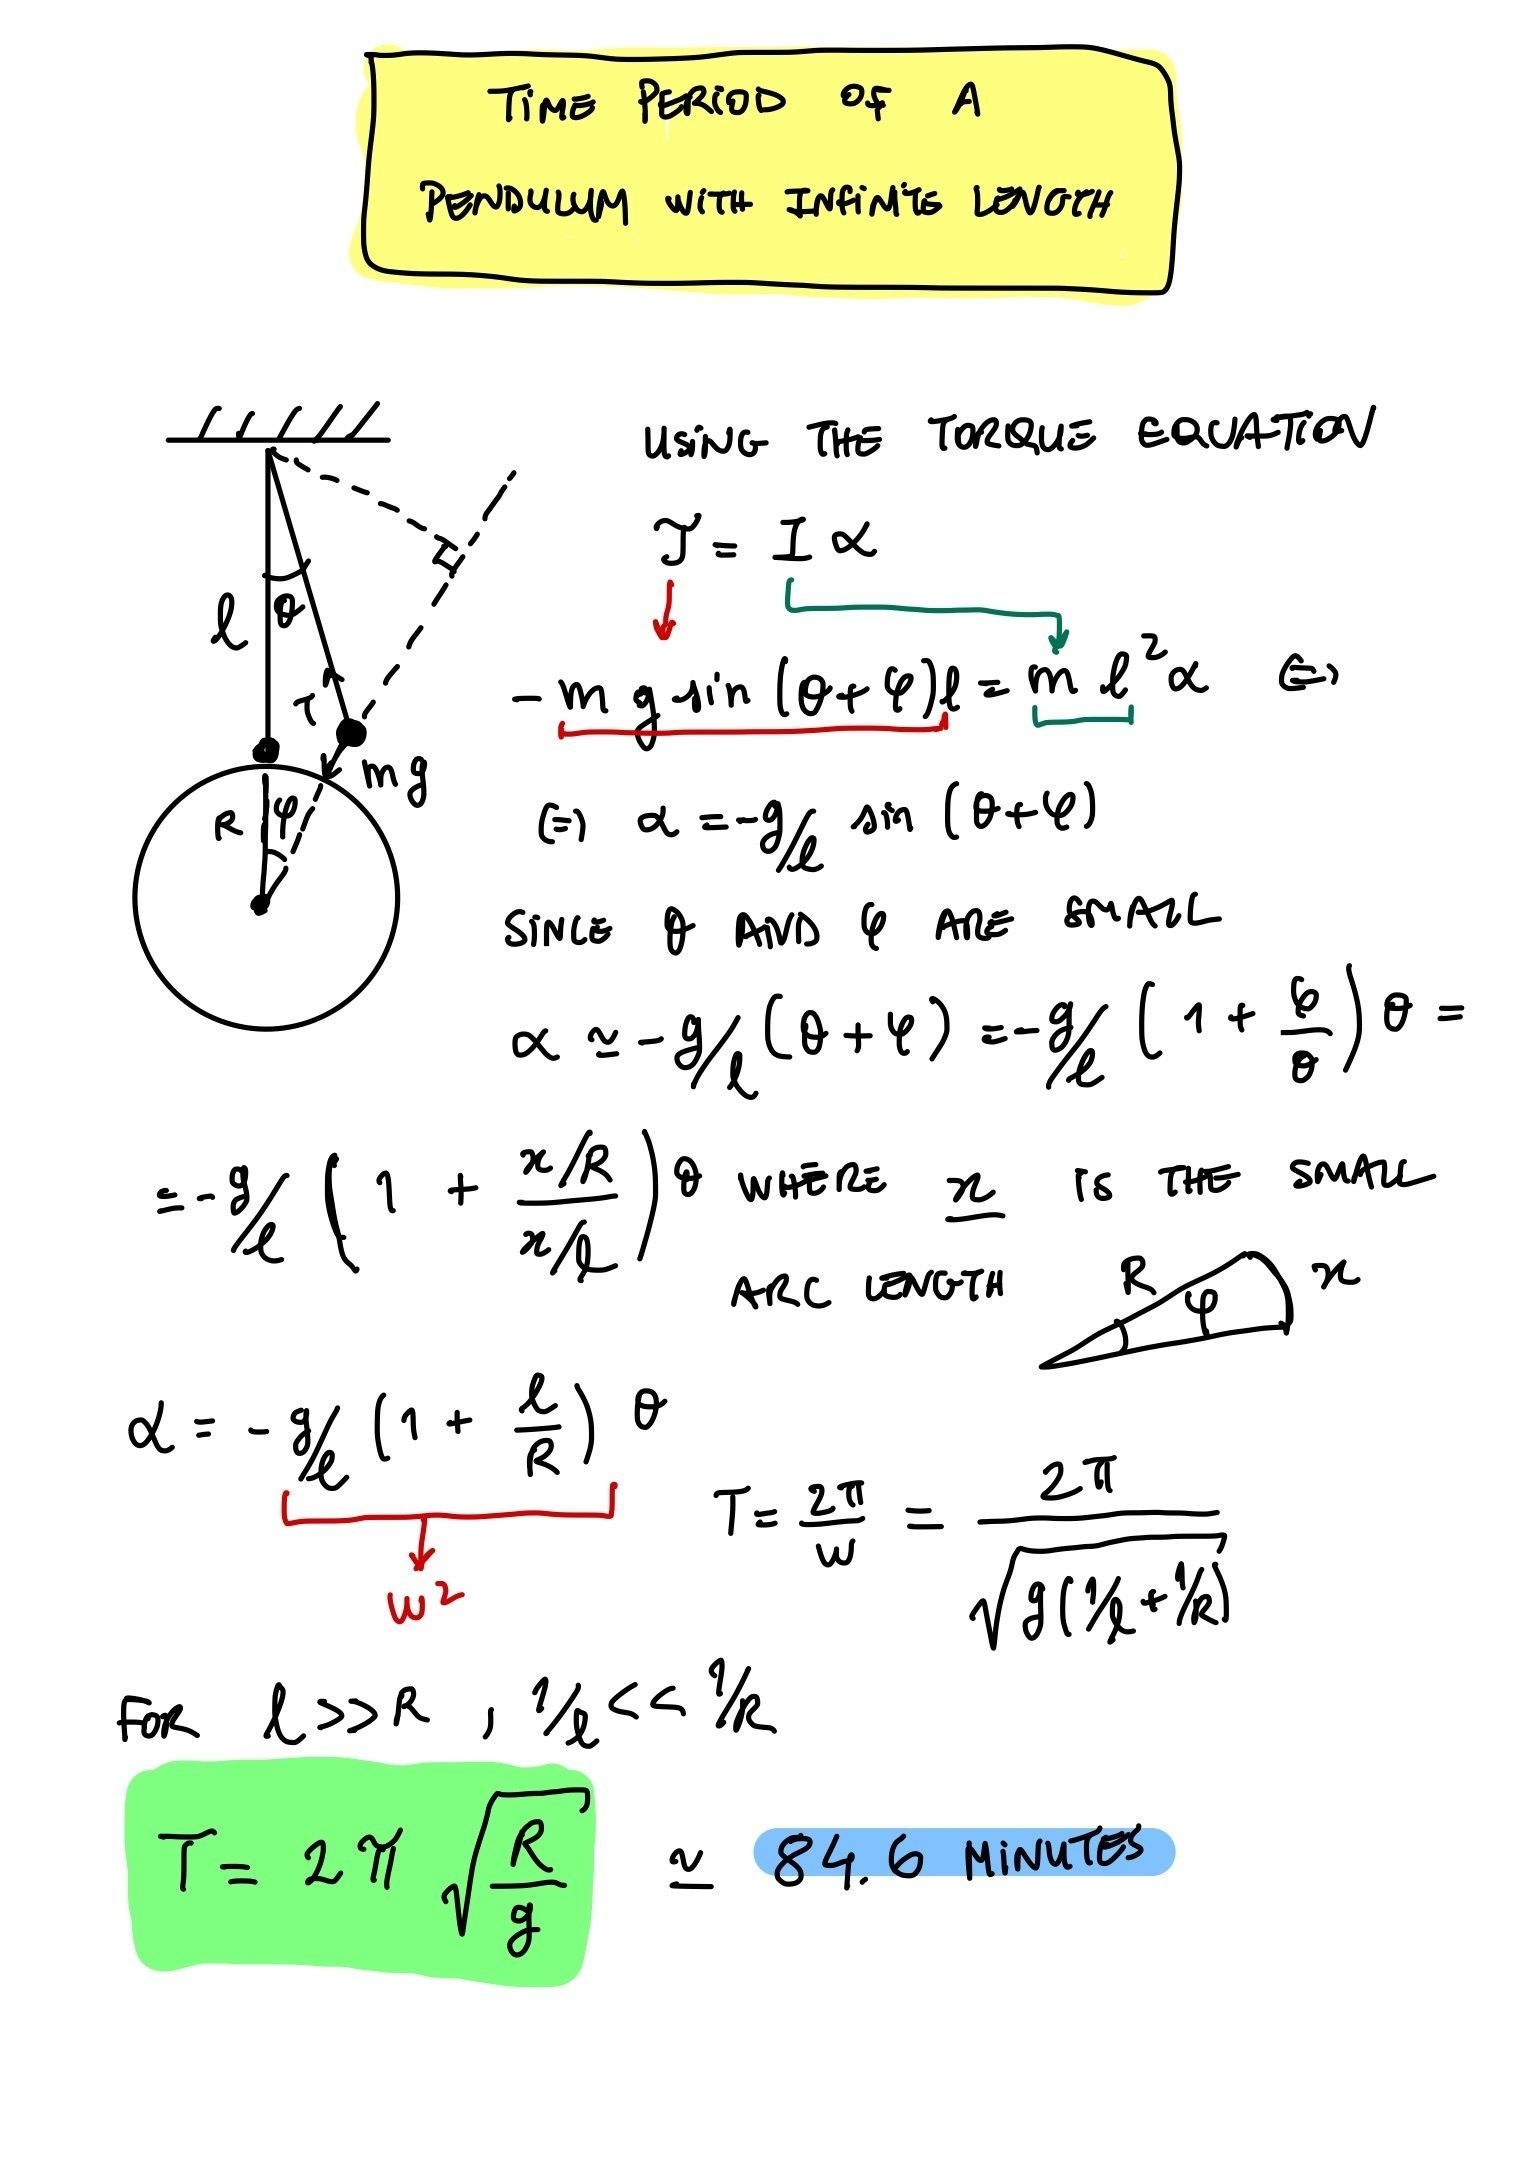 TIME PERIOD OF A
PENDULUM WITH INFINITE LENGTH
USING THE TORQUE EQUATION
τ = I α
l θ
- m g sin (θ+φ) l = m l² α ⇔
T
mg
R φ
⇔ α = -g/l sin (θ+φ)
SINCE θ AND φ ARE SMALL
α ≃ -g/l (θ+φ) = -g/l (1 + φ/θ) θ =
= -g/l (1 + (x/R)/(x/l)) θ WHERE x IS THE SMALL
ARC LENGTH
R φ x
α = - g/l (1 + l/R) θ
w²
T = 2π/w = 2π/√(g(1/l + 1/R))
FOR l >> R , 1/l << 1/R
T = 2π √(R/g) ≃ 84.6 MINUTES